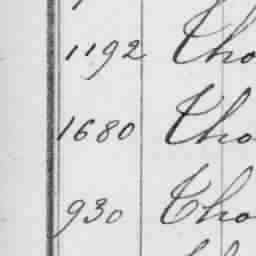 1192 Tho
1680 Tho
930 Tho